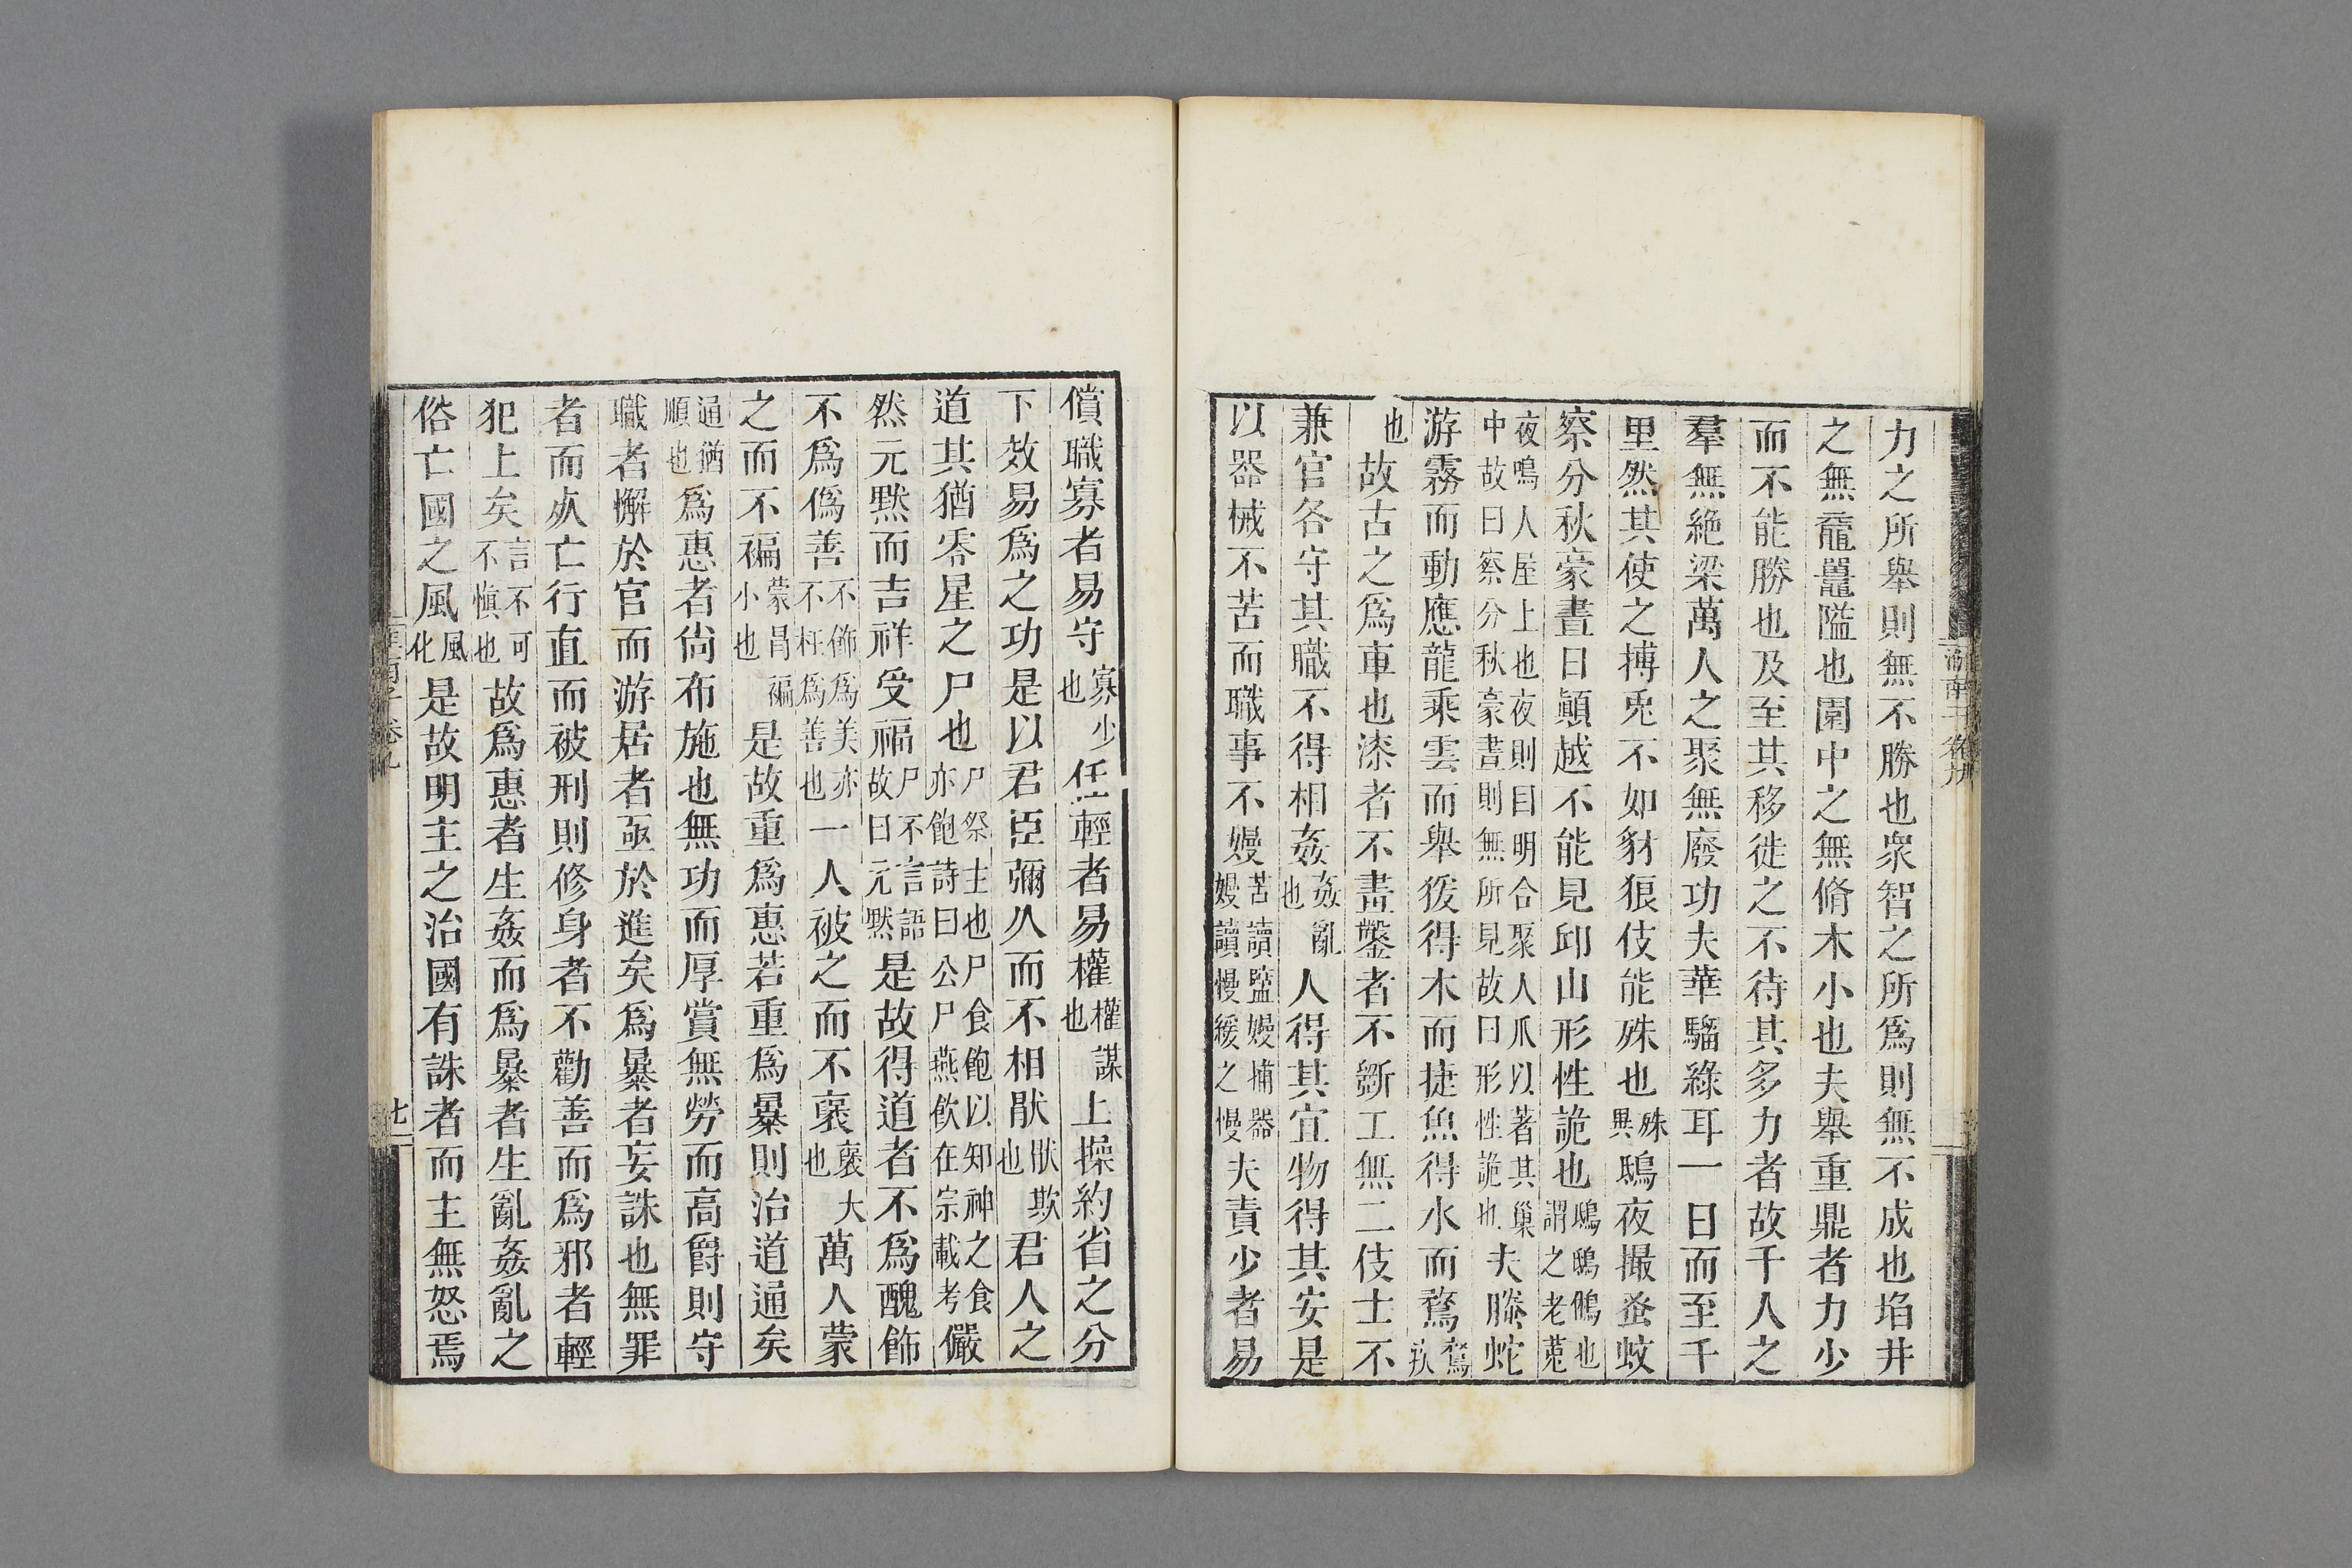 力之所舉則無不勝也衆智之所爲則無不成也埳井
之無黿鼉隘也園中之無脩木小也夫舉重鼎者力少
而不能勝也及至其移徙之不待其多力者故千人之
羣無絶梁萬人之聚無廢功夫華騮綠耳一日而至千
里然其使之搏兎不如豺狼伎能殊也殊異鴟夜撮蚤蚊
察分秋豪晝日顚越不能見邱山形性詭也鴟鴟鵂也謂之老菟
夜鳴人屋上也夜則目明合聚人爪以著其巢中故曰察分秋豪晝則無所見故曰形性詭也夫螣蛇
游霧而動應龍乘雲而舉猨得木而捷魚得水而鶩鶩疾
也故古之爲車也漆者不畫鑿者不斵工無二伎士不
兼官各守其職不得相姦姦亂也人得其宜物得其安是
以器械不苦而職事不嫚苦讀盬嫚捕器嫚讀慢緩之慢夫責少者易
償職寡者易守寡少也任輕者易權權謀也上操約省之分
下效易爲之功是以君臣彌久而不相猒猒欺也君人之
道其猶零星之尸也尸祭主也尸食飽以知神之食亦飽詩曰公尸燕飮在宗載考儼
然元默而吉祥受福尸不言語故曰元默是故得道者不爲醜飾
不爲僞善不飾爲美亦不枉爲善也一人被之而不褒褒大也萬人蒙
之而不褊蒙冒褊小也是故重爲惠若重爲暴則治道通矣
通猶順也爲惠者尙布施也無功而厚賞無勞而高爵則守
職者懈於官而游居者亟於進矣爲暴者妄誅也無罪
者而死亡行直而被刑則修身者不勸善而爲邪者輕
犯上矣言不可不愼也故爲惠者生姦而爲暴者生亂姦亂之
俗亡國之風風化是故明主之治國有誅者而主無怒焉